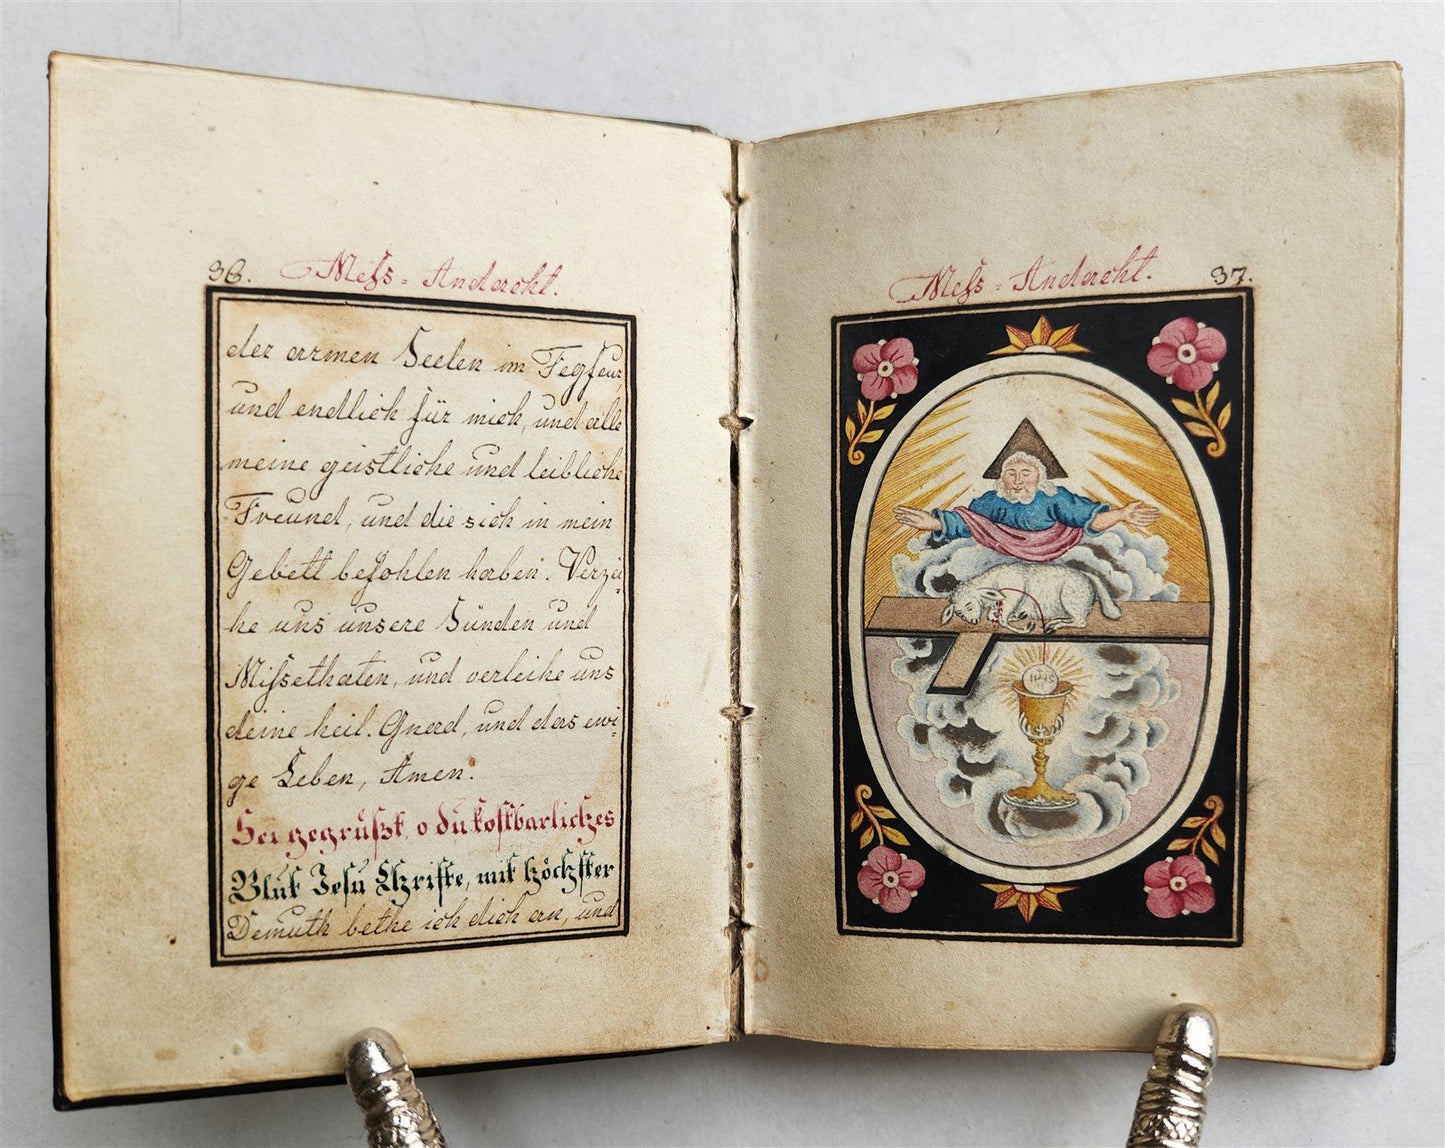 36. Mess = Andacht.
der armen Seelen im Fegfeur,
und endlich für mich, und alle
meine geistliche und leibliche
Freund, und die sich in mein
Gebett befohlen haben. Verzei-
he uns unsere Sünden und
Missethaten, und verleihe uns
deine heil. Gnad, und das ewi-
ge Leben, Amen.
Sei gegrüßt, o du kostbarliches
Blut Jesu Christe, mit höchster
Demuth bethe ich dich an, und
Mess = Andacht. 37.
IHS